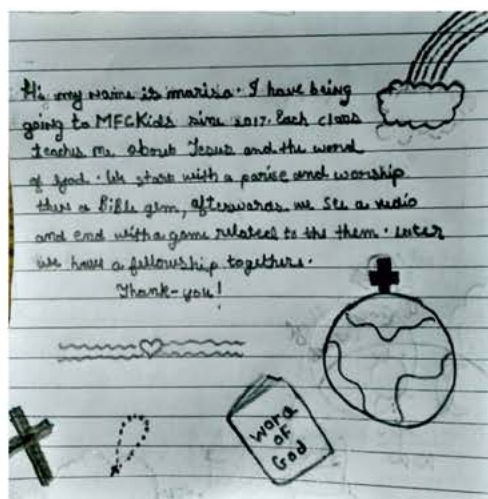 Hi my name is marisa. I have being
going to MFCKids sine 2017. Each class
teaches me about Jesus and the word
of god. We start with a parise and worship
then a Bible gem, afterwards we see a vedio
and end with a game related to the them. later
we have a fellowship together.
Thank-you!
word
of
God